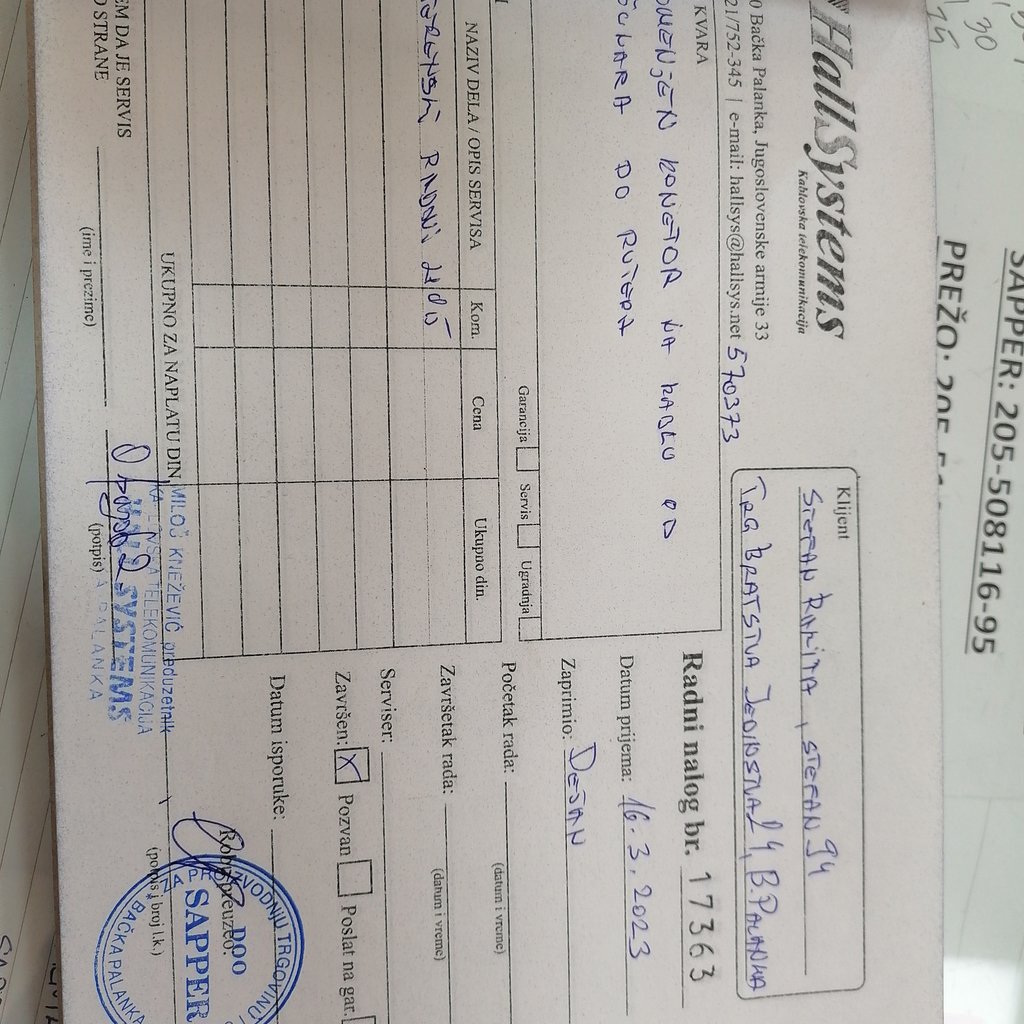 HallSystems
Kablovska telekomunikacija
0 Bačka Palanka, Jugoslovenske armije 33
21/752-345 | e-mail: hallsys@hallsys.net 570373
Klijent
STEFAN RAMITA, STEFAN94
TRG BRATSTVA JEDINSTVA 14, B.PALANKA
KVARA
OMENJEN KONETOR NA KABLU OD
DO RUTERA
Garancija Servis Ugradnja
Radni nalog br. 17363
Datum prijema: 16.3.2023
Zaprimio: DEJAN
Početak rada:
(datum i vreme)
Završetak rada:
(datum i vreme)
Serviser:
Završen: X Pozvan Poslat na gar.
Datum isporuke:
NAZIV DELA / OPIS SERVISA Kom. Cena Ukupno din.
RADNI
UKUPNO ZA NAPLATU DIN.
EM DA JE SERVIS
O STRANE
(ime i prezime)
(potpis)
MILOŠ KNEŽEVIĆ preduzetnik
TELEKOMUNIKACIJA
SYSTEMS
PALANKA
Robu preuzeo:
(potpis i broj l.k.)
ZA PROIZVODNJU TRGOVINU
DOO
SAPPER
BAČKA PALANKA
SAPPER: 205-508116-95
PREŽO: 205
30